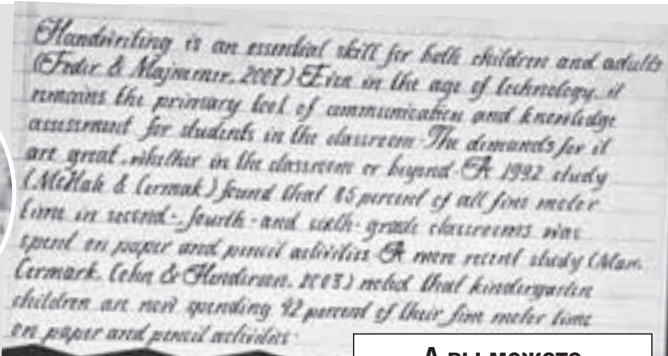 Handwriting is an essential skill for both children and adults
(Feder & Majnemer, 2007) Even in the age of technology, it
remains the primary tool of communication and knowledge
assessment for students in the classroom. The demands for it
are great, whether in the classroom or beyond. A 1992 study
(McHale & Cermak) found that 85 percent of all fine motor
time in second-, fourth- and sixth- grade classrooms was
spent on paper and pencil activities. A more recent study (Marr,
Cermak, Cohn & Henderson, 2003) noted that kindergarten
children are now spending 42 percent of their fine motor time
on paper and pencil activities.